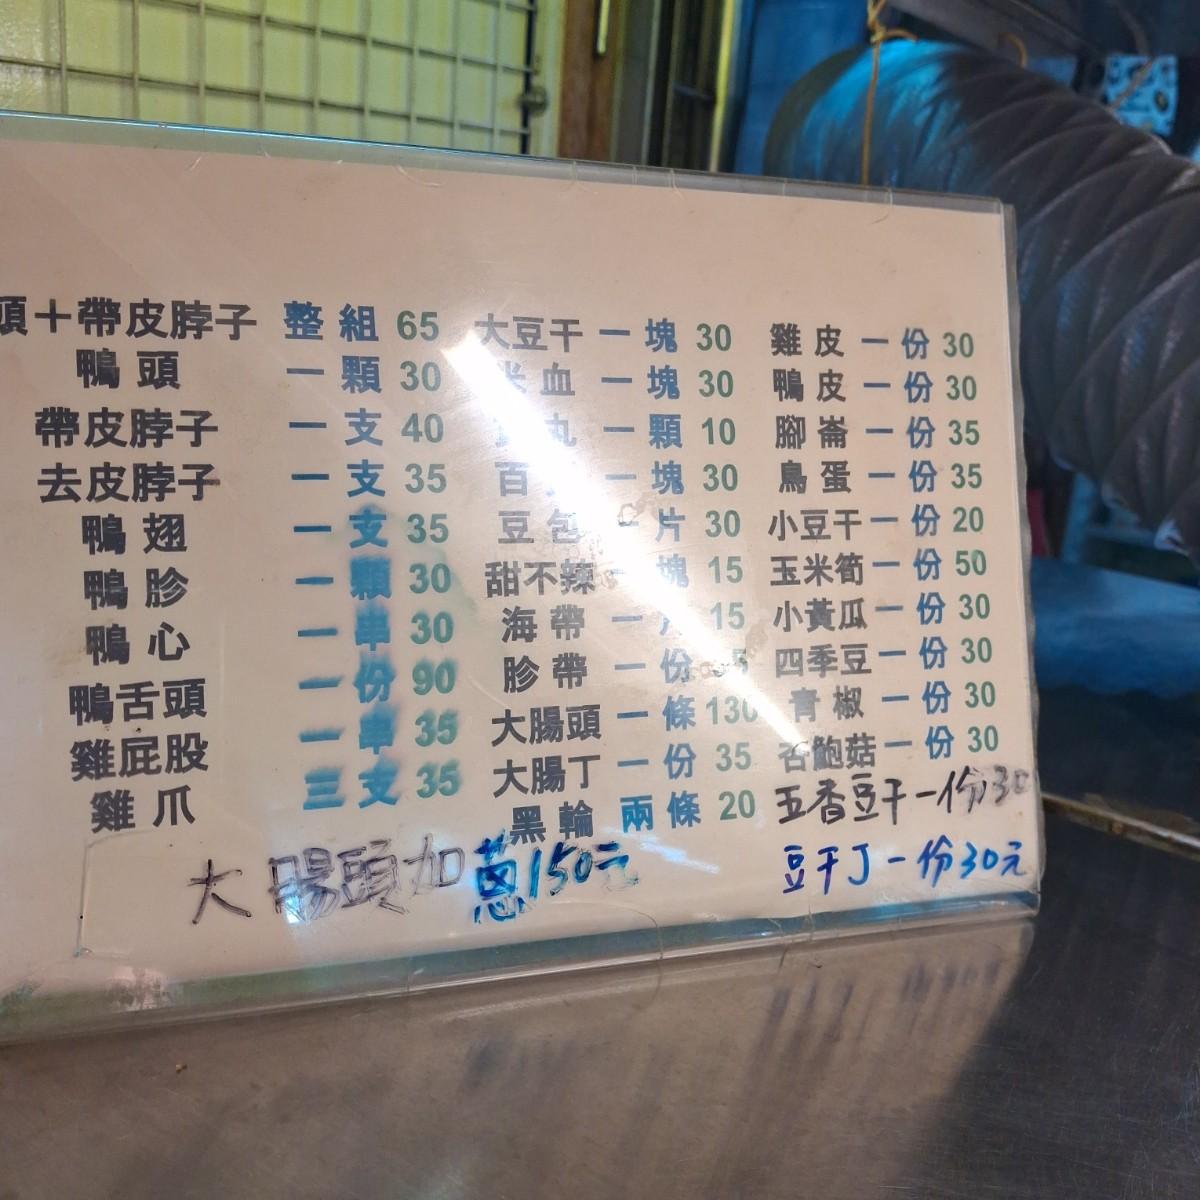 頭＋帶皮脖子 整組 65
鴨頭 一顆 30
帶皮脖子 一支 40
去皮脖子 一支 35
鴨翅 一支 35
鴨胗 一顆 30
鴨心 一串 30
鴨舌頭 一份 90
雞屁股 一串 35
雞爪 三支 35
大豆干 一塊 30
米血 一塊 30
丸 一顆 10
百 一塊 30
豆包 一片 30
甜不辣 一塊 15
海帶 一 15
胗帶 一份 5
大腸頭 一條 130
大腸丁 一份 35
黑輪 兩條 20
雞皮 一份 30
鴨皮 一份 30
腳崙 一份 35
鳥蛋 一份 35
小豆干 一份 20
玉米筍 一份 50
小黃瓜 一份 30
四季豆 一份 30
青椒 一份 30
杏鮑菇 一份 30
五香豆干一份30
豆干丁一份30元
大腸頭加蔥150元